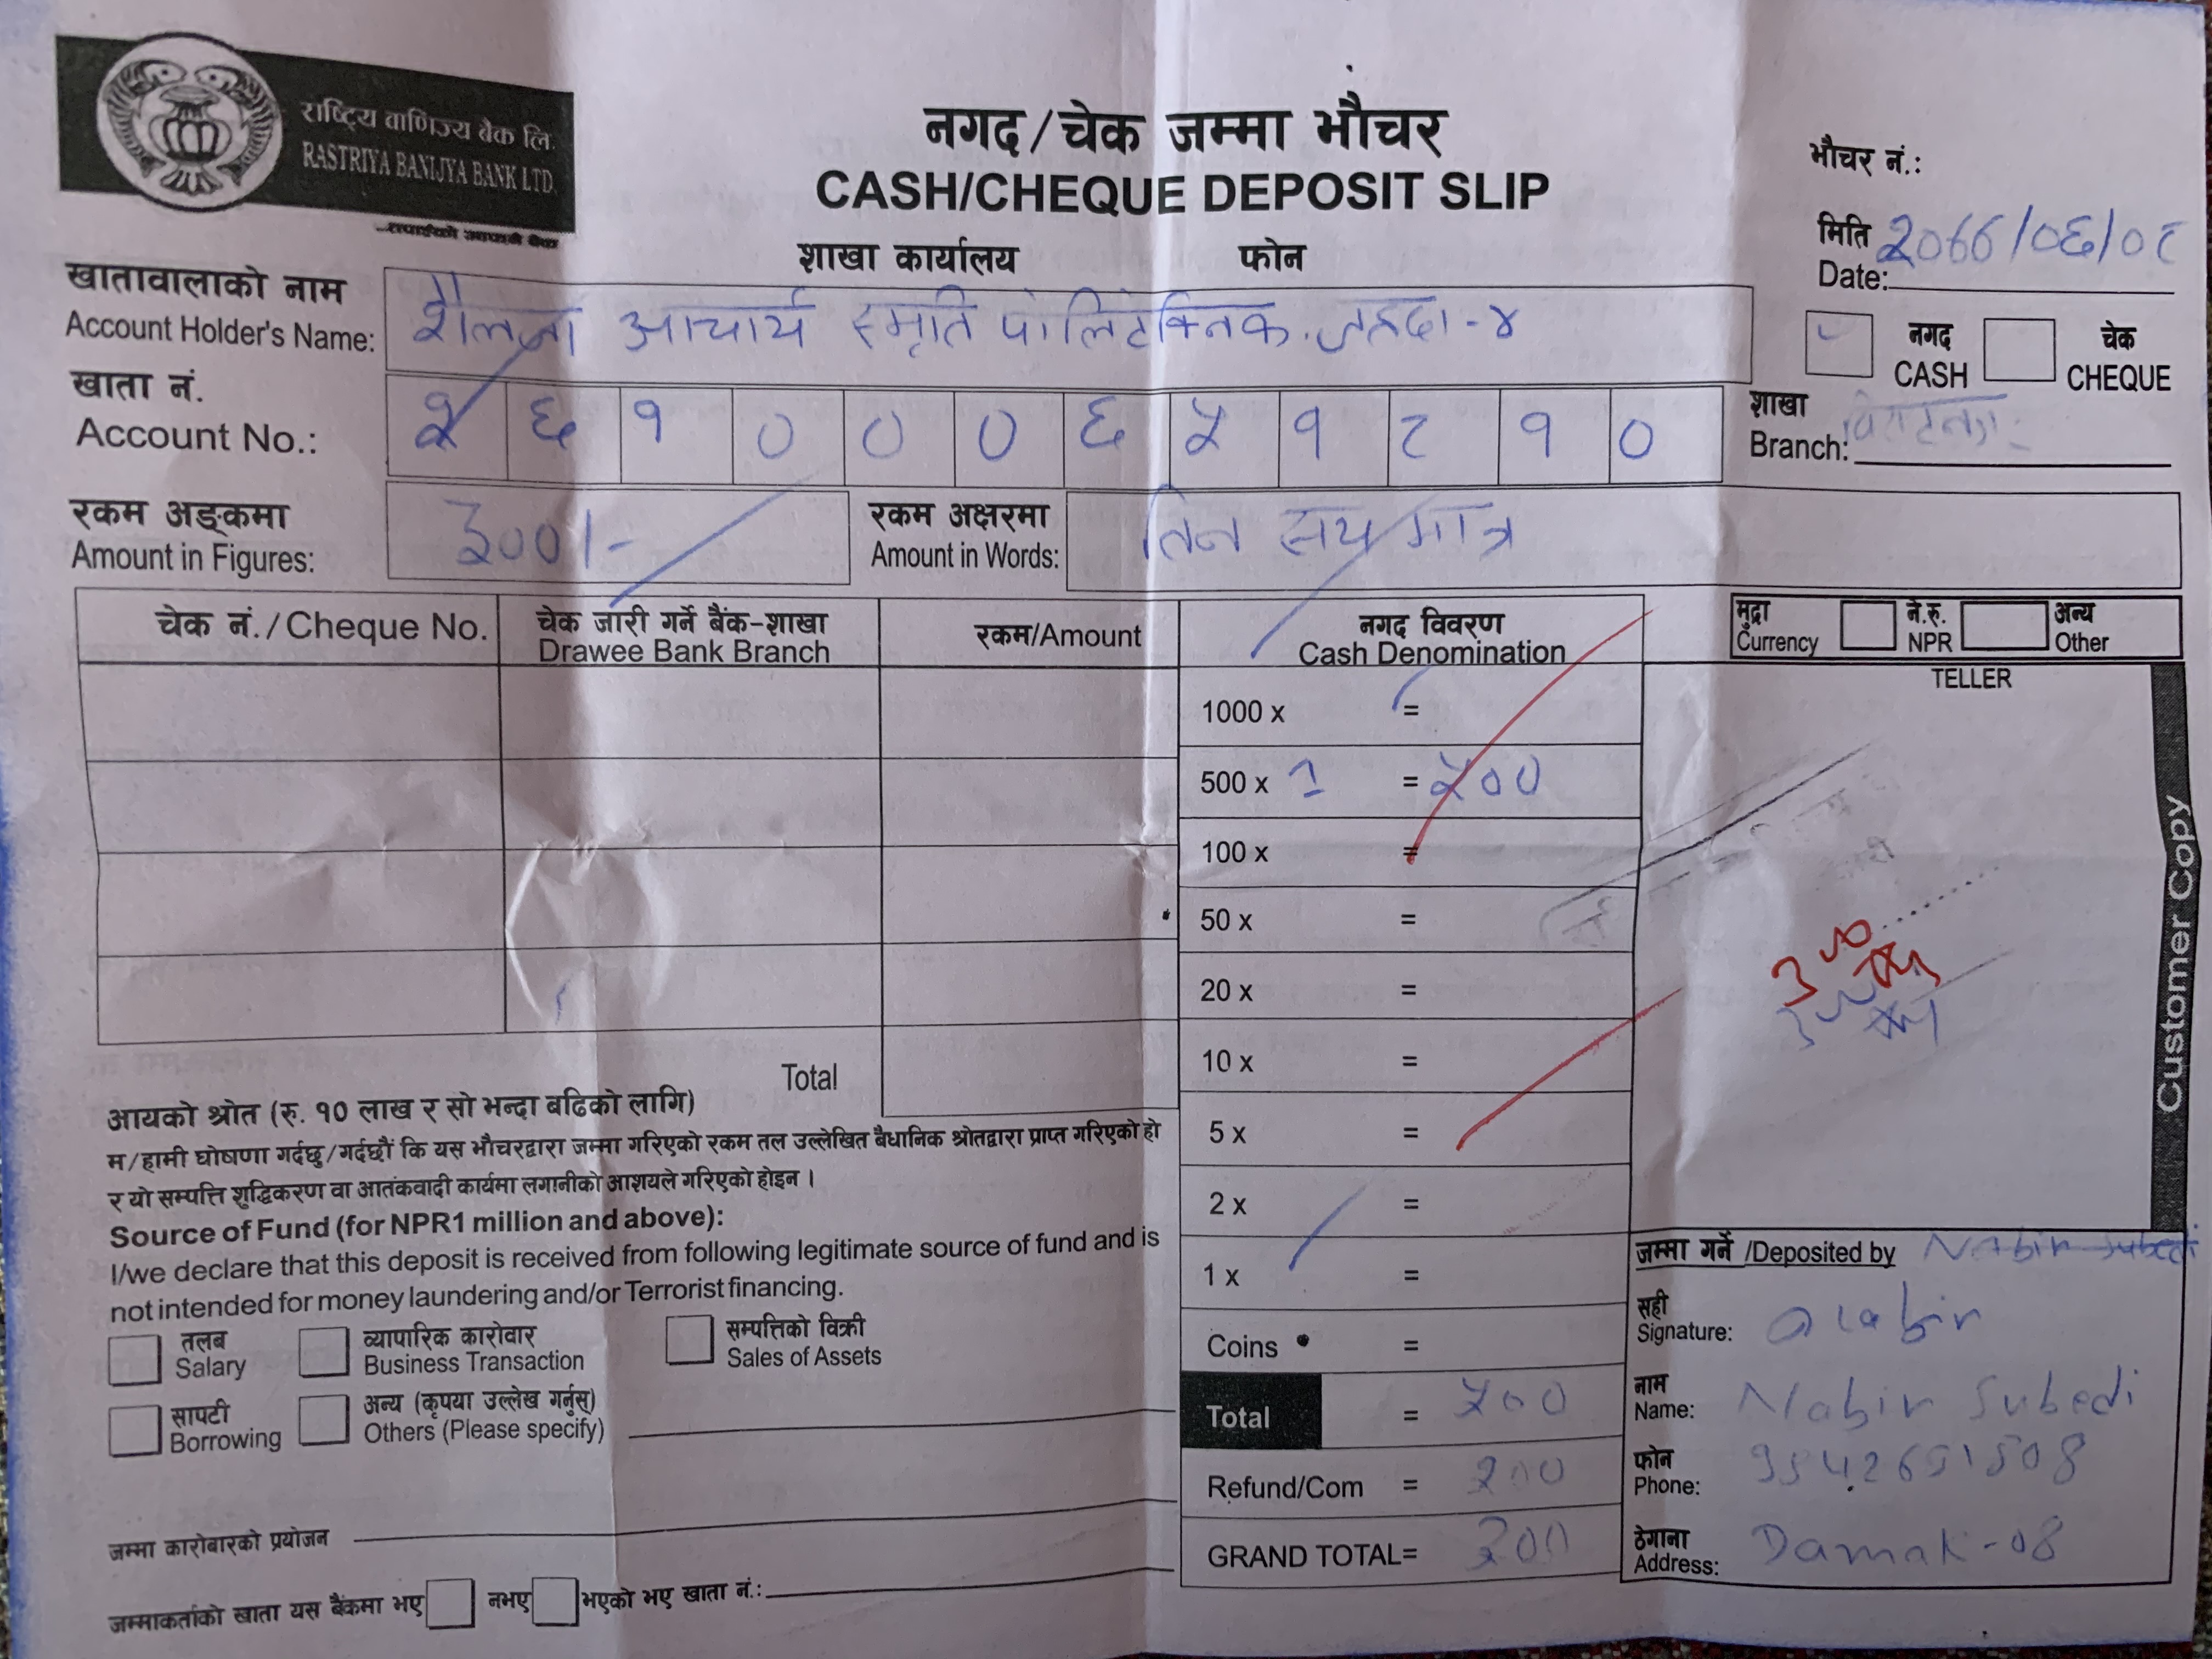 राष्ट्रिय वाणिज्य बैंक लि.
RASTRIYA BANIJYA BANK LTD.
नगद/चेक जम्मा भौचर
CASH/CHEQUE DEPOSIT SLIP
शाखा कार्यालय फोन
भौचर नं.:
मिति
Date:
खातावालाको नाम
Account Holder's Name: आचार्य स्मृति
नगद
CASH
चेक
CHEQUE
खाता नं.
Account No.:
शाखा
Branch:
रकम अङ्कमा
Amount in Figures: ३००/-
रकम अक्षरमा
Amount in Words: तिन सय मात्र
चेक नं./Cheque No.
चेक जारी गर्ने बैंक-शाखा
Drawee Bank Branch
रकम/Amount
नगद विवरण
Cash Denomination
मुद्रा
Currency
ने.रु.
NPR
अन्य
Other
1000 x =
500 x १ = ५००
100 x =
50 x =
20 x =
10 x =
5 x =
2 x =
1 x =
Coins =
Total = ५००
Refund/Com = २००
GRAND TOTAL= ३००
TELLER
Total
आयको श्रोत (रु. १० लाख र सो भन्दा बढिको लागि)
म/हामी घोषणा गर्दछु/गर्दछौं कि यस भौचरद्वारा जम्मा गरिएको रकम तल उल्लेखित बैधानिक श्रोतद्वारा प्राप्त गरिएको हो
र यो सम्पत्ति शुद्धिकरण वा आतंकवादी कार्यमा लगानीको आशयले गरिएको होइन ।
Source of Fund (for NPR1 million and above):
I/we declare that this deposit is received from following legitimate source of fund and is
not intended for money laundering and/or Terrorist financing.
तलब
Salary
व्यापारिक कारोवार
Business Transaction
सम्पत्तिको विक्री
Sales of Assets
सापटी
Borrowing
अन्य (कृपया उल्लेख गर्नुस)
Others (Please specify)
जम्मा कारोबारको प्रयोजन
जम्माकर्ताको खाता यस बैंकमा भए नभए भएको भए खाता नं.:
जम्मा गर्ने/Deposited by Nabin Subedi
सही
Signature: Nabin
नाम
Name: Nabin Subedi
फोन
Phone:
ठेगाना
Address: Damak-08
Customer Copy